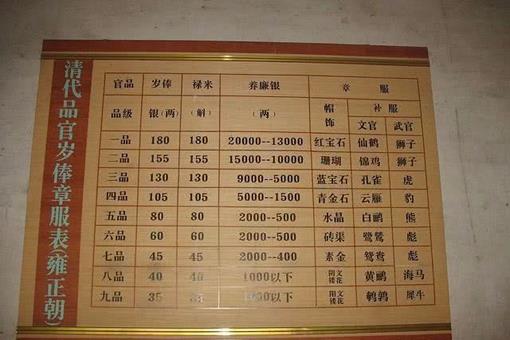 清代品官岁俸章服表(雍正朝)
官品 岁俸 禄米 养廉银 章服
品级 银(两) (斛) (两) 帽饰 补服
文官 武官
一品 180 180 20000--13000 红宝石 仙鹤 狮子
二品 155 155 15000--10000 珊瑚 锦鸡 狮子
三品 130 130 9000--5000 蓝宝石 孔雀 虎
四品 105 105 5000--1500 青金石 云雁 豹
五品 80 80 2000--500 水晶 白鹇 熊
六品 60 60 2000--500 砖渠 鹭鸶 彪
七品 45 45 2000--400 素金 鸳鸯 彪
八品 40 40 1000以下 阴文镂花 黄鹂 海马
九品 35 以下 阳文镂花 鹌鹑 犀牛